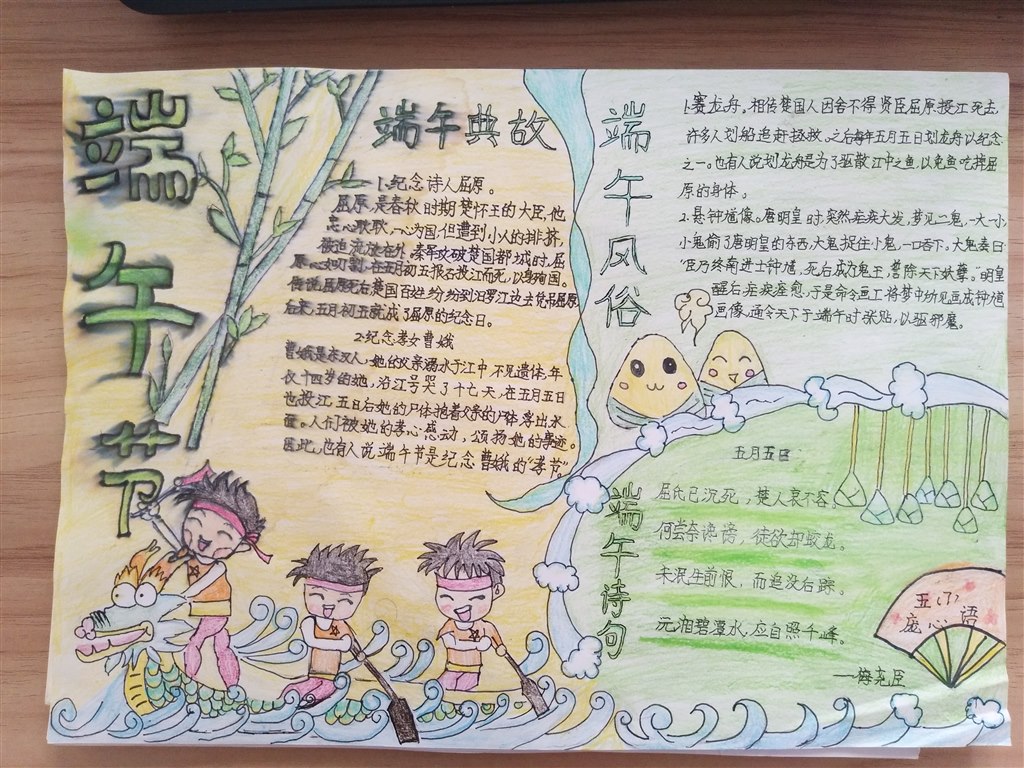 端午节
端午典故
1.纪念诗人屈原。
屈原,是春秋时期楚怀王的大臣,他
忠心耿耿,一心为国,但遭到小人的排挤,
被迫流放在外,秦军攻破楚国都城时,屈
原心如刀割,在五月初五抱石投江而死,以身殉国。
传说屈原死后楚国百姓纷纷到汨罗江边去凭吊屈原
后来,五月初五就成了屈原的纪念日。
2.纪念孝女曹娥
曹娥是东汉人,她的父亲溺水于江中,不见遗体,年
仅十四岁的她,沿江号哭了十七天,在五月五日
也投江,五日后她的尸体抱着父亲的尸体浮出水
面。人们被她的孝心感动,颂扬她的事迹。
因此,也有人说端午节是纪念曹娥的“孝节”。
端午风俗
1.赛龙舟。相传楚国人因舍不得贤臣屈原投江死去,
许多人划船追赶拯救。之后每年五月五日划龙舟以纪念
之一。也有人说划龙舟是为了驱散江中之鱼,以免鱼吃掉屈
原的身体。
2.悬钟馗像。唐明皇时突然疟疾大发,梦见二鬼,一大一小
小鬼偷了唐明皇的东西,大鬼捉住小鬼,一口吞下。大鬼奏曰
“臣乃终南进士钟馗,死后成为鬼王,誓除天下妖孽。”明皇
醒后疟疾痊愈,于是命令画工将梦中所见画成钟馗
画像,通令天下于端午时张贴,以驱邪魔。
端午诗句
五月五日
屈氏已沉死,楚人哀不容。
何尝奈谗谤,徒欲却蛟龙。
未泯生前恨,而追没后踪。
沅湘碧潭水,应自照千峰。
——梅尧臣